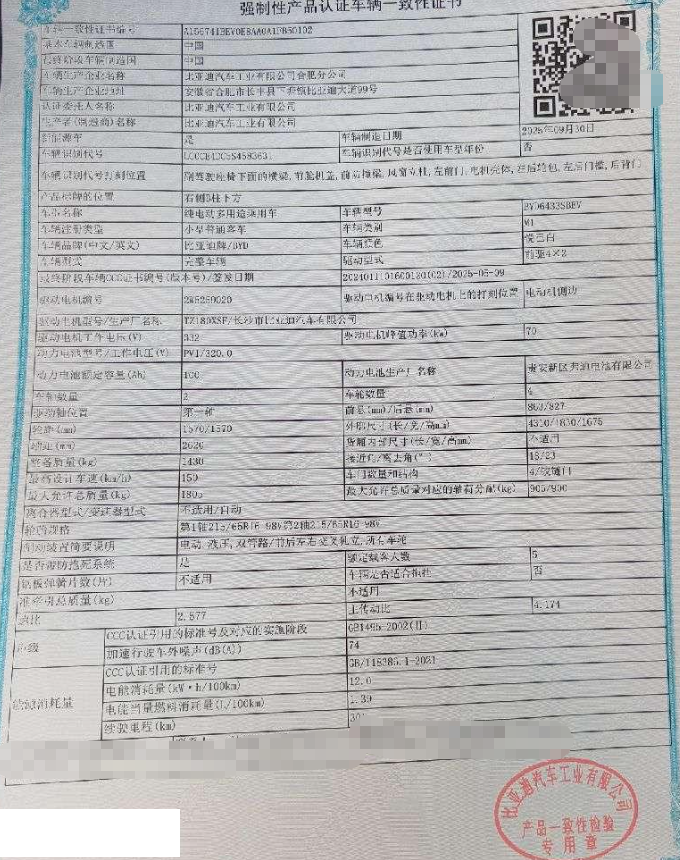 强制性产品认证车辆一致性证书
车辆一致性证书编号
基本车辆制造国 中国
最终阶段车辆制造国 中国
车辆生产企业名称 比亚迪汽车工业有限公司合肥分公司
车辆生产企业地址 安徽省合肥市长丰县下塘镇比亚迪大道99号
认证委托人名称 比亚迪汽车工业有限公司
生产者(制造商)名称 比亚迪汽车工业有限公司
新能源车 是 车辆制造日期 2025年09月30日
车辆识别代号 车辆识别代号是否使用车型年份 否
车辆识别代号打刻位置
产品标牌的位置 右侧B柱下方
车型名称 纯电动多用途乘用车 车辆型号 BYD6433SBEV
车辆注册类型 小型普通客车 车辆类别 M1
车辆品牌(中文/英文) 比亚迪牌/BYD 车辆颜色
车辆型式 完整车辆 驱动型式 前驱4×2
最终阶段车辆CCC证书编号(版本号)/签发日期
驱动电机编号 驱动电机编号在驱动电机上的打刻位置 电动机侧边
驱动电机型号/生产厂名称 TZ180XSF/长沙市比亚迪汽车有限公司
驱动电机工作电压(V) 332 驱动电机峰值功率(kw) 70
动力电池型号/工作电压(V) /320.0
动力电池额定容量(Ah) 100 动力电池生产厂名称 贵安新区弗迪电池有限公司
车轴数量 2 车轮数量 4
驱动轴位置 第一轴 前悬(mm)/后悬(mm) 863/827
轮距(mm) 1570/1570 外部尺寸(长/宽/高mm) 4310/1830/1675
轴距(mm) 2620 货厢内部尺寸(长/宽/高mm) 不适用
整备质量(kg) 1430 接近角/离去角(°) 18/23
最高设计车速(km/h) 150 车门数量和结构
最大允许总质量(kg) 1805 最大允许总质量对应的轴荷分配(kg) 905/900
离合器型式/变速器型式 不适用/自动
轮胎规格 第1轴215/65R16 98V第2轴215/65R16 98V
制动装置简要说明
是否带防抱死系统 是 额定载客人数 5
钢板弹簧片数(片) 不适用 车辆是否适合拖挂 否
准牵引总质量(kg) 不适用
速比 2.577 主传动比 4.174
声级 CCC认证引用的标准号及对应的实施阶段 GB1495-2002(Ⅱ)
加速行驶车外噪声(dB(A)) 74
能源消耗量 CCC认证引用的标准号 GB/T18386.1-2021
电能消耗量(kW·h/100km) 12.0
电能当量燃料消耗量(L/100km) 1.39
续驶里程(km)
比亚迪汽车工业有限公司
产品一致性检验
专用章